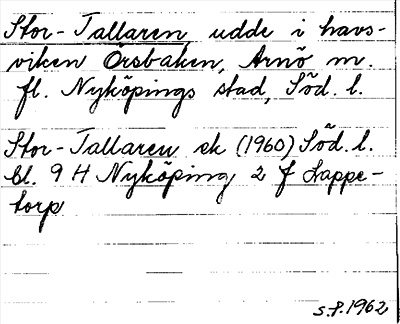 Stor-Tallaren udde i havs-
viken Örsbaken, Arnö m.
fl. Nyköpings stad, Söd. l.
Stor-Tallaren ek (1960) Söd. l.
bl. 9 H Nyköping 2 f Lappe-
torp
s.f. 1962